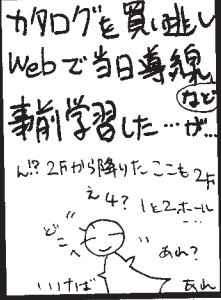 カタログを買い逃し
Webで当日導線
など
事前学習した…が…
ん!? 2Fから降りたここも2F
え4? 1と2ホール…
どこへ
あれ?
いけば
あれ